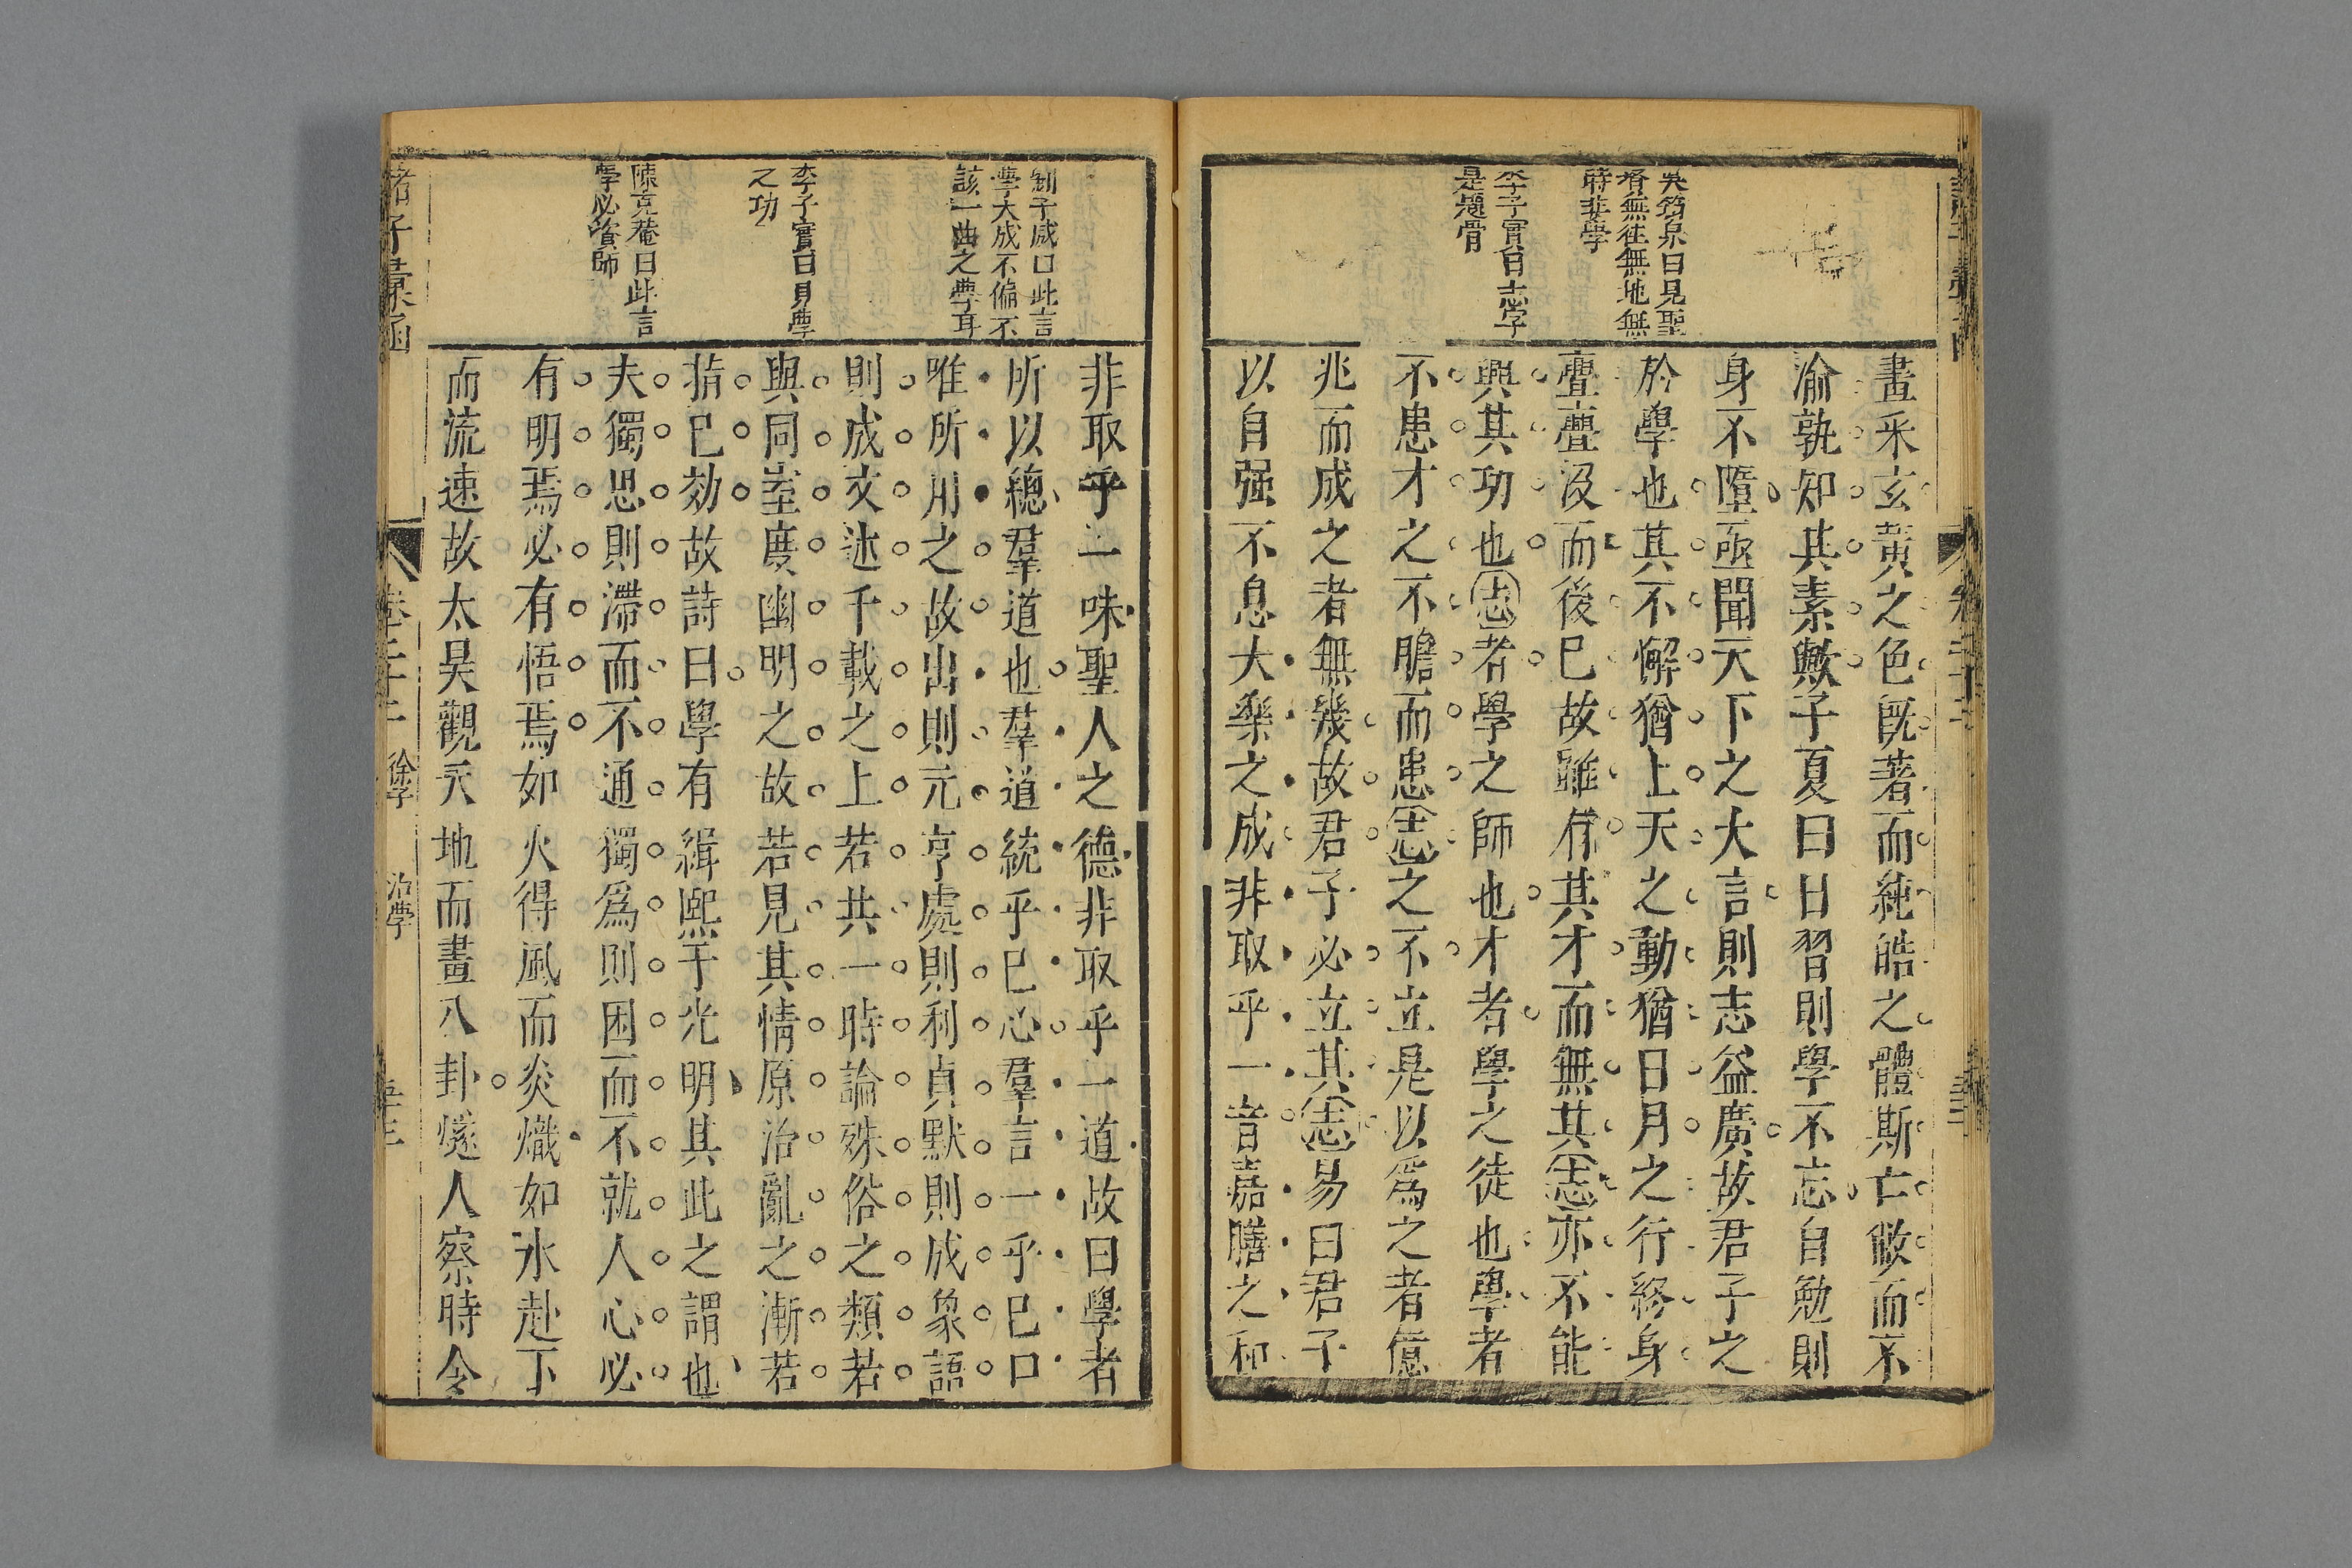 吳筠泉曰見聖
者無往無地無
時非學
李子實曰志字
是題骨
畫采玄黃之色既著而純皓之體斯亡敝而不
渝孰知其素歟子夏曰日習則學不忘自勉則
身不墮亟聞天下之大言則志益廣故君子之
於學也其不懈猶上天之動猶日月之行終身
亹亹沒而後已故雖有其才而無其志亦不能
興其功也志者學之師也才者學之徒也學者
不患才之不贍而患志之不立是以爲之者億
兆而成之者無幾故君子必立其志易曰君子
以自强不息大樂之成非取乎一音嘉膳之和
劉子威曰此言
學大成不偏不
該一曲之學耳
李子實曰見學
之功
陳克菴曰此言
學必資師
非取乎一味聖人之德非取乎一道故曰學者
所以總羣道也羣道統乎已心羣言一乎已口
唯所用之故出則元亨處則利貞默則成象語
則成文述千載之上若共一時論殊俗之類若
與同室度幽明之故若見其情原治亂之漸若
指已効故詩曰學有緝熙于光明其此之謂也
夫獨思則滯而不通獨爲則困而不就人心必
有明焉必有悟焉如火得風而炎熾如水赴下
而流速故太昊觀天地而畫八卦燧人察時令
諸子彙函
卷二十二
徐子
治學